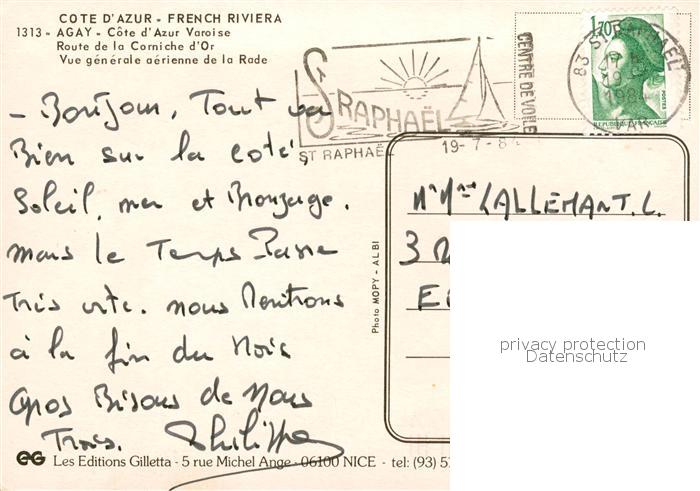 COTE D'AZUR - FRENCH RIVIERA
1313 - AGAY - Côte d'Azur Varoise
Route de la Corniche d'Or
Vue générale aérienne de la Rade
ST RAPHAËL
ST RAPHAËL 19-7-8
CENTRE DE VOILE
83 ST RAPHAEL
VAR
1,70
POSTES
REPUBLIQUE FRANÇAISE
- Bonjour, Tout va
Bien sur la coté,
Soleil, mer et Bronzage.
mais le Temps Passe
Très vite. nous Rentrons
à la fin du Mois
Gros Bisous de Nous
Trois. Philippe
Photo MOPY - ALBI
Mr Mme LALLEMANT. L.
3
E
privacy protection
Datenschutz
EG Les Editions Gilletta - 5 rue Michel Ange - 06100 NICE - tel: (93) 5